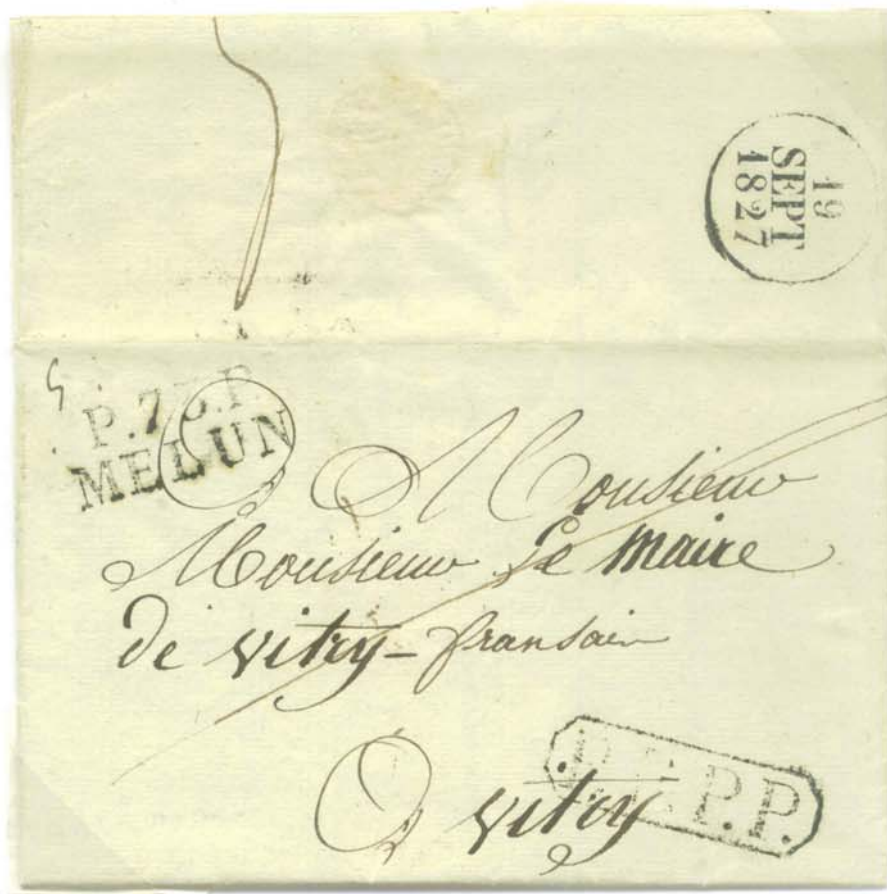 19
SEPT
1827
P.75.P.
MELUN
A Monsieur
Monsieur Le Maire
de Vitry-fransain
A Vitry
P.P.